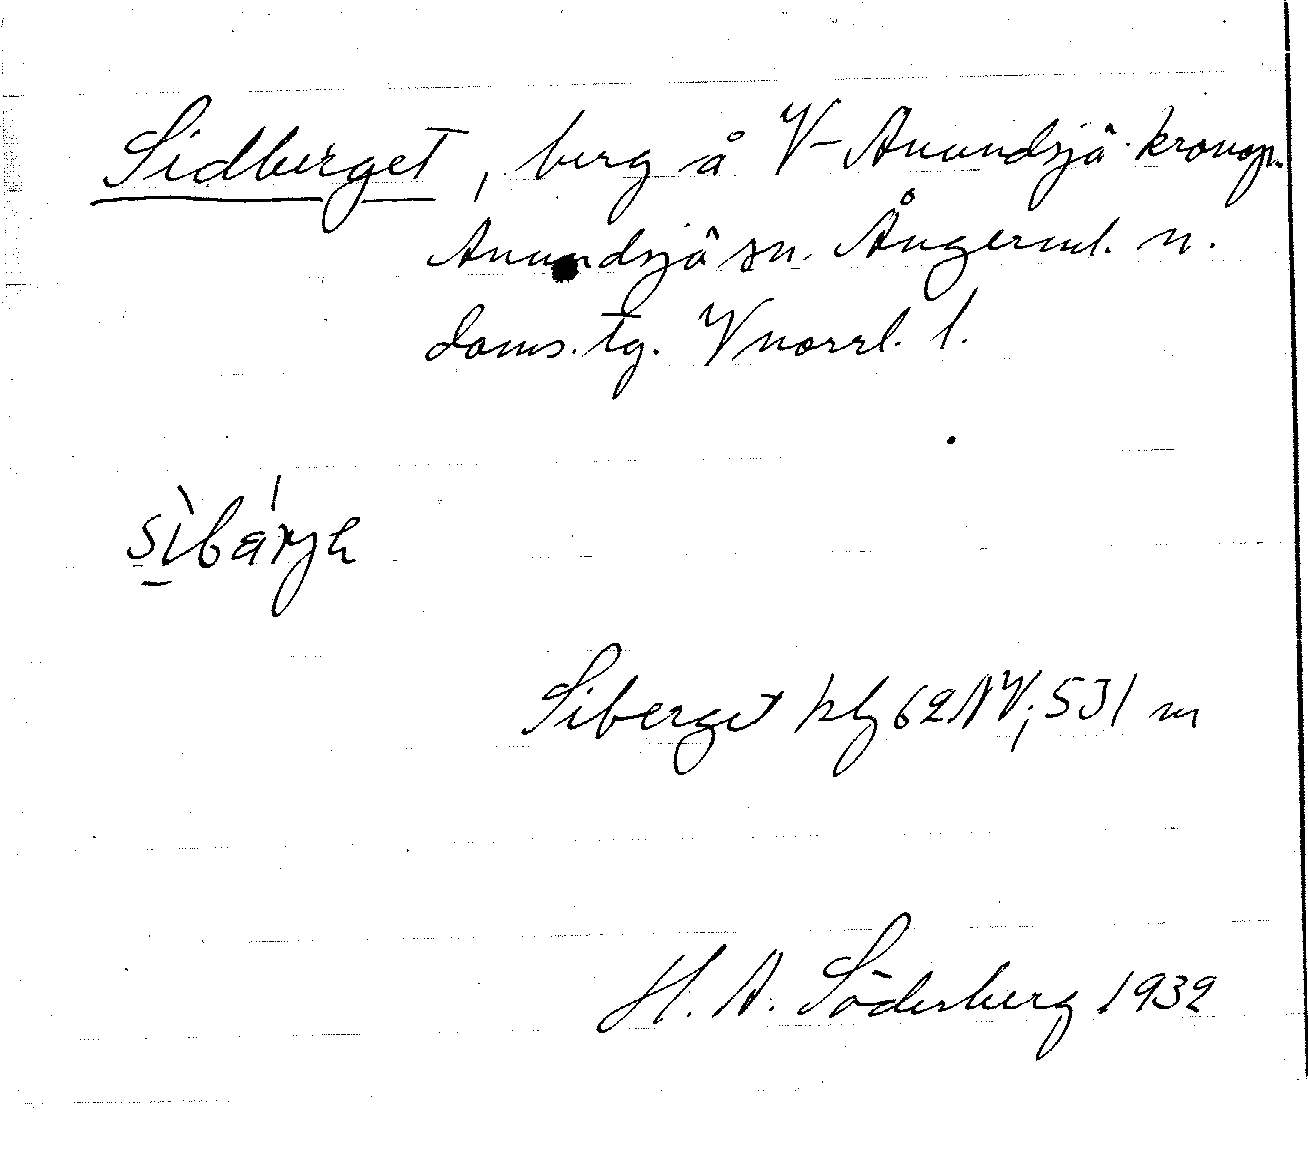 Sidberget, berg å V-Anundsjö kronop.
Anundsjö sn. Ångerml. n.
doms. tg. Vnorrl. l.
Siberget hly 62 NV; 531 m
H. A. Söderberg 1932